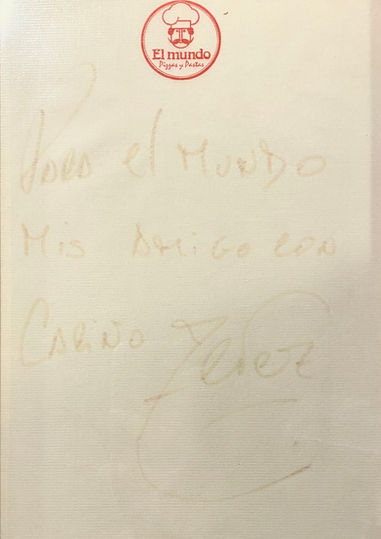 El mundo
Pizzas y Pastas
Para el MUNDO
Mis AMigo con
CARiño